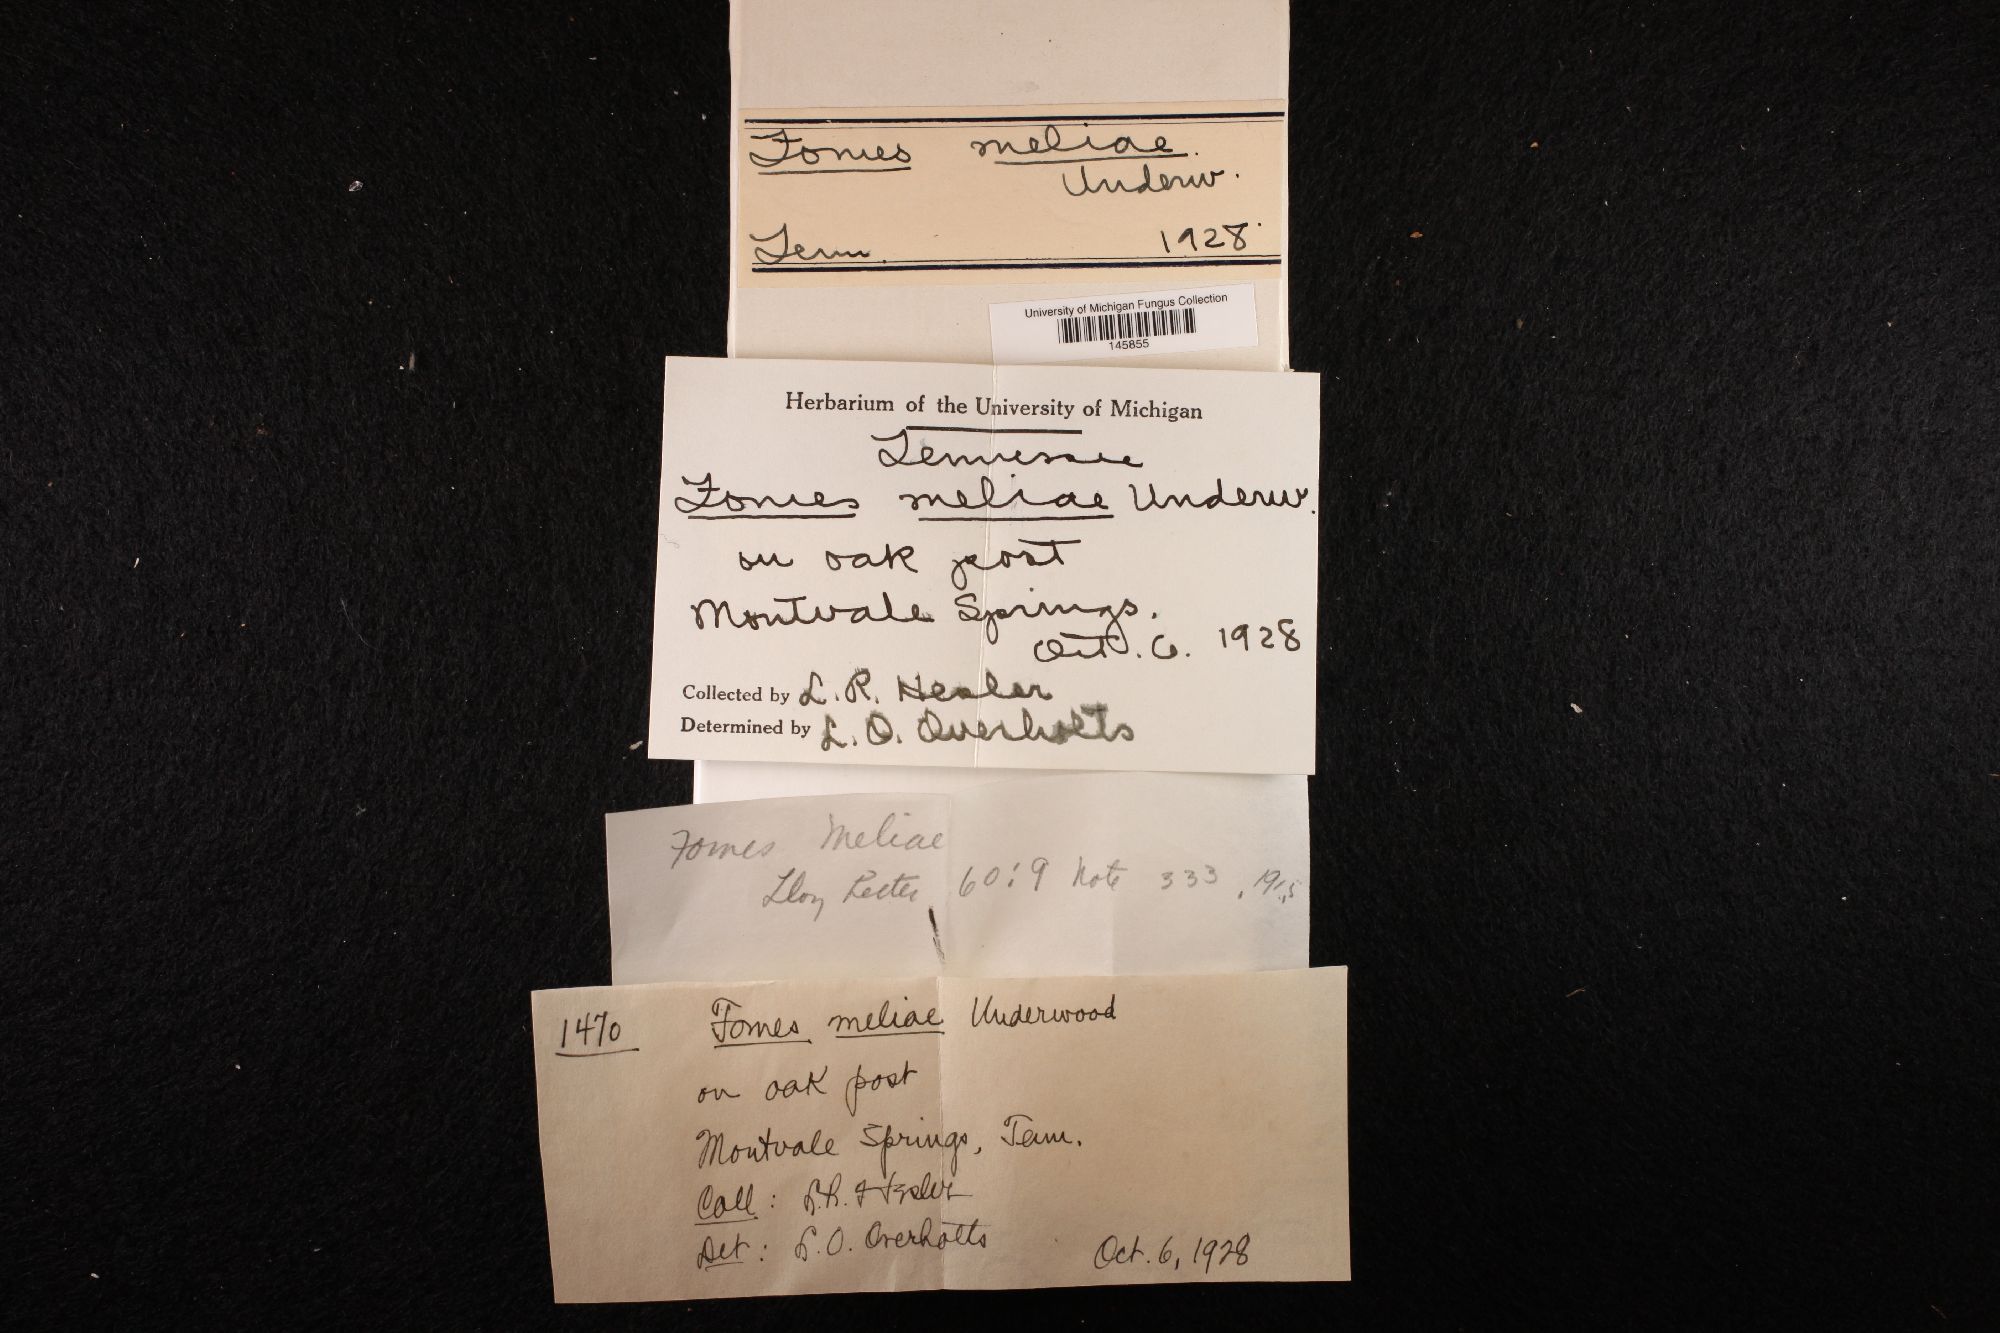 Fomes meliae
Underw.
Tenn. 1928
University of Michigan Fungus Collection
145855
Herbarium of the University of Michigan
Tennessee
Fomes meliae Underw.
on oak post
Montvale Springs.
Oct. 6. 1928
Collected by L. R. Hesler
Determined by L. O. Overholts
Fomes Meliae
Letter 60:9 Note 333
1470 Fomes meliae Underwood
on oak post
Montvale Springs, Tenn.
Coll: L.R. Hesler
Det: L.O. Overholts
Oct. 6, 1928